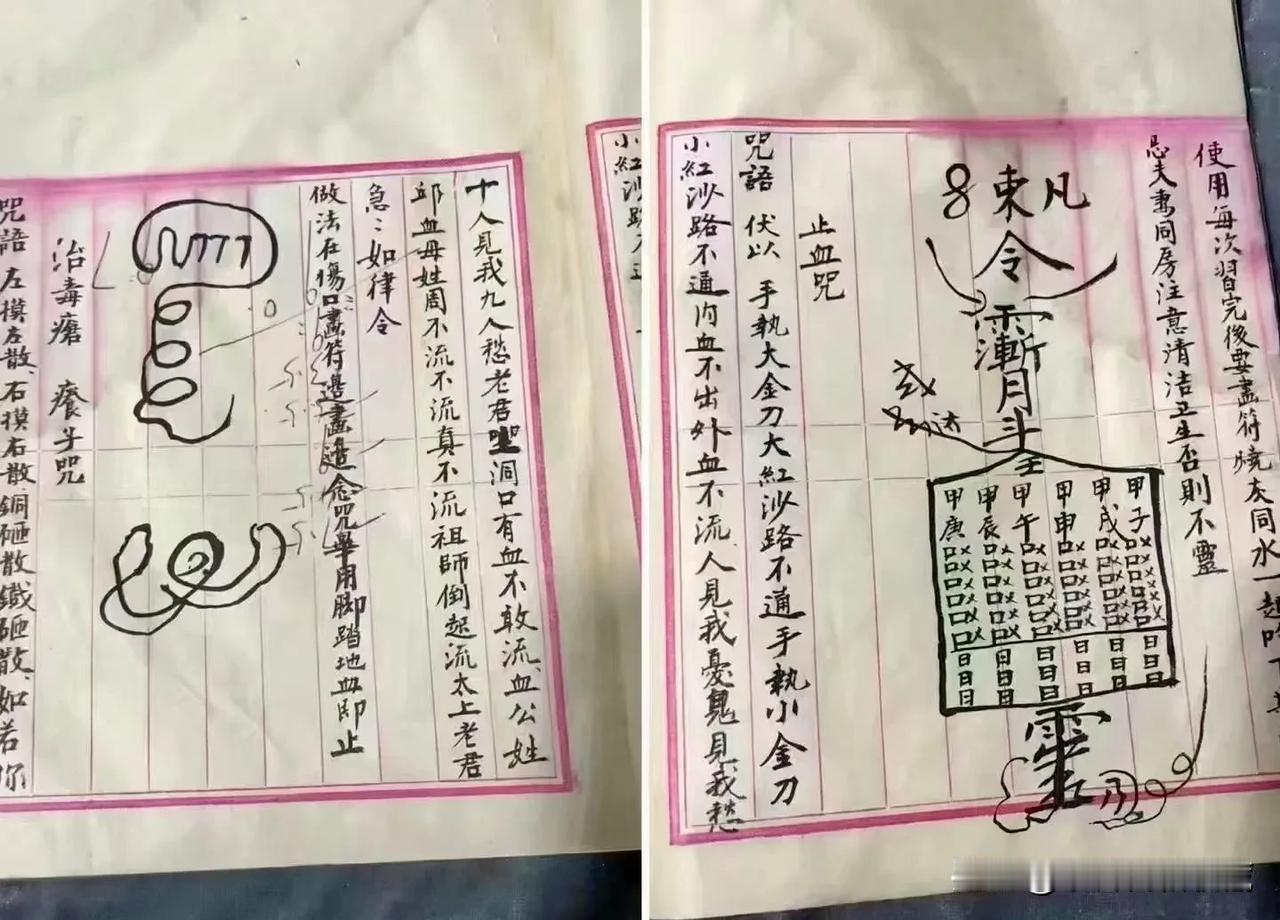 使用每次習完後要畫符燒灰同水一起吃下
忌夫妻同房注意清洁卫生否則不靈
8東凡
令
月
斗
甲子
甲戌
甲申
甲午
甲辰
甲庚
口口口口口口
日日日
日日日
日日日
日日日
日日日
日日日
靈
止血咒
咒語 伏以 手執大金刀大紅沙路不通手執小金刀
小紅沙路不通內血不出外血不流人見我憂鬼見我愁
十人見我九人愁老君坐洞口有血不敢流血公姓
邱血母姓周不流不流真不流祖師倒起流太上老君
急〻如律令
做法在傷口畫符邊畫邊念咒畢用脚踏地血即止
治毒瘡 癢子咒
咒語 左摸左散右摸右散銅砸散鐵砸散如若你
小紅沙路不通